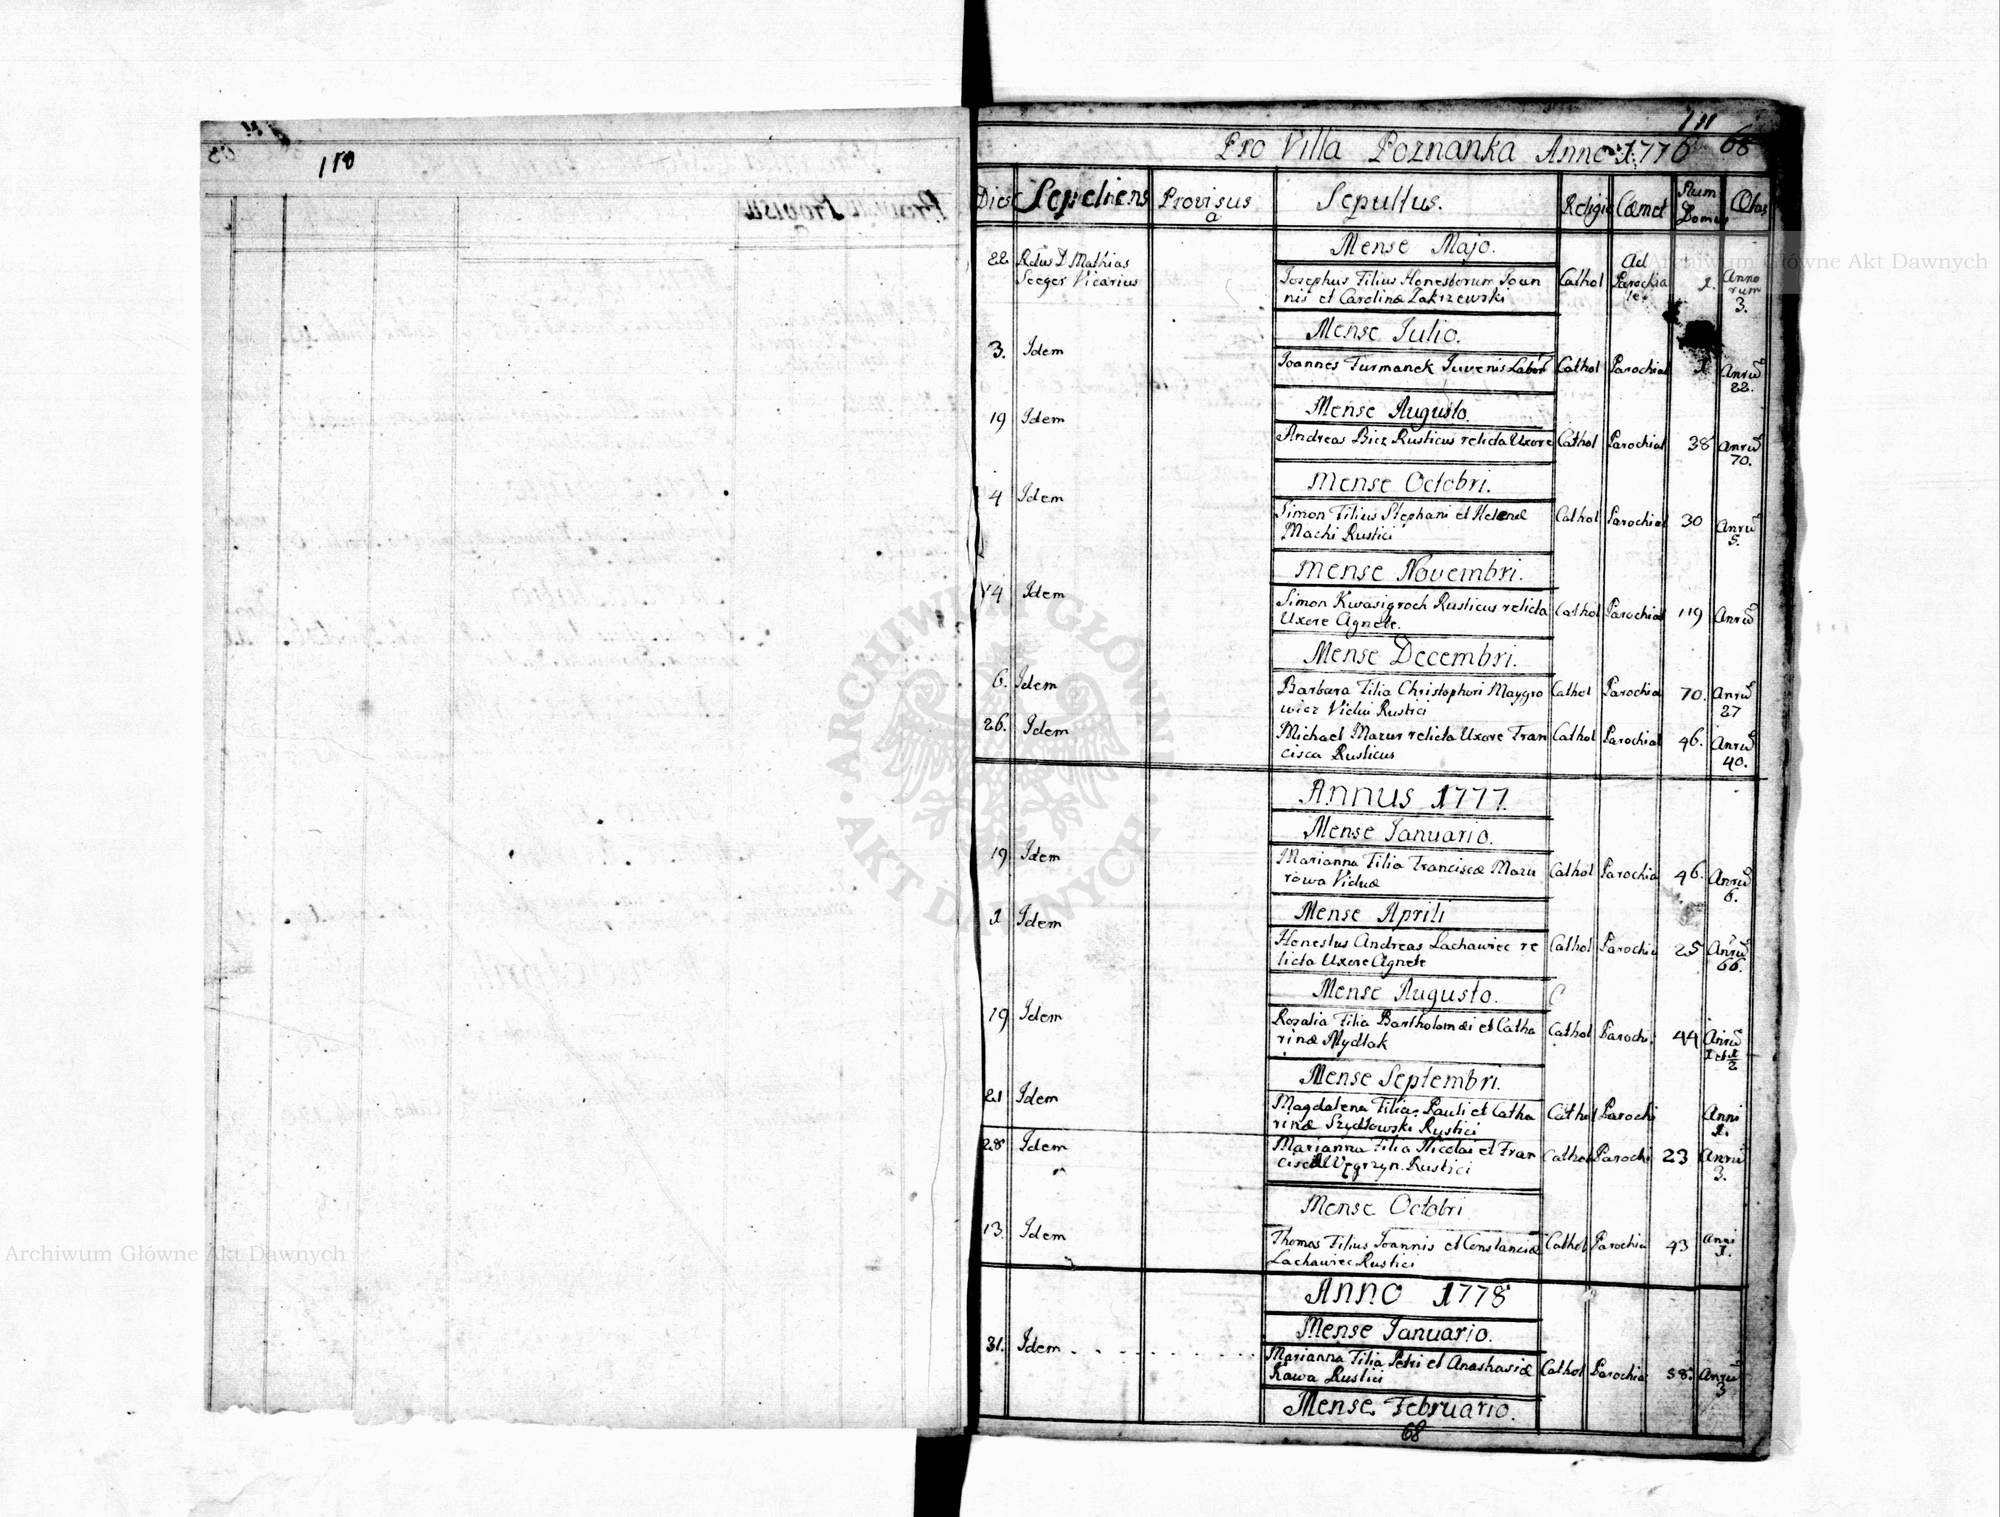 110
111
Pro Villa Poznanka Anno 1776 68
Dies Sepeliens Provisus a Sepultus. Religio Cæmet Num Domus Ætas
Mense Majo.
22 Rdus D Mathias
Seeger Vicarius
Josephus Filius Honestorum Joan
nis et Carolinæ Zakrzewski
Cathol Ad Parochia
1. Anno
rum
3.
Mense Julio.
3. Idem
Joannes Furmanek Juvenis Cathol Parochial Anrũ
22.
Mense Augusto.
19 Idem
Andreas Bicz Rusticus relicta Uxore Cathol Parochial 38 Anrũ
70.
Mense Octobri.
4 Idem
Simon Filius Stephani et Helenæ Cathol Parochial 30 Anrũ
Machi Rustici 5.
Mense Novembri.
14 Idem
Simon Kwasigroch Rusticus relicta Cathol Parochial 119 Anrũ
Uxore Agnete.
Mense Decembri.
6. Idem
Barbara Filia Christophori Maygro Cathol Parochia 70. Anrũ
wicz Vidui Rustici 27
26. Idem
Michael Mazur relicta Uxore Fran Cathol Parochial 46. Anrũ
cisca Rusticus 40.
Annus 1777.
Mense Januario.
19 Idem
Marianna Filia Franciscæ Mazu Cathol Parochia 46. Anrũ
rowa Viduæ 6.
Mense Aprili
1 Idem
Honestus Andreas Lachawiec re Cathol Parochia 25 Anrũ
licta Uxore Agnete 66.
Mense Augusto.
19 Idem
Rozalia Filia Bartholomæi et Catha Cathol Parochi 44 Anrũ
rinæ Mydlak 1 et 1/2
Mense Septembri.
21 Idem
Magdalena Filia Pauli et Catha Cathol Parochi Anni
rinæ Szydlowski Rustici 1.
28 Idem
Marianna Filia Nicolai et Fran Cathol Parochi 23 Anrũ
ciscæ Węgrzyn Rustici 3.
Mense Octobri
13. Idem
Thomas Filius Joannis et Constanciæ Cathol Parochia 43 Anni
Lachawiec Rustici 1.
Anno 1778
Mense Januario.
31. Idem
Marianna Filia Petri et Anastasiæ Cathol Parochia 58. Anrũ
Kawa Rustici 3
Mense Februario.
68
Archiwum Główne Akt Dawnych
Archiwum Główne Akt Dawnych
ARCHIWUM GŁÓWNE
AKT DAWNYCH